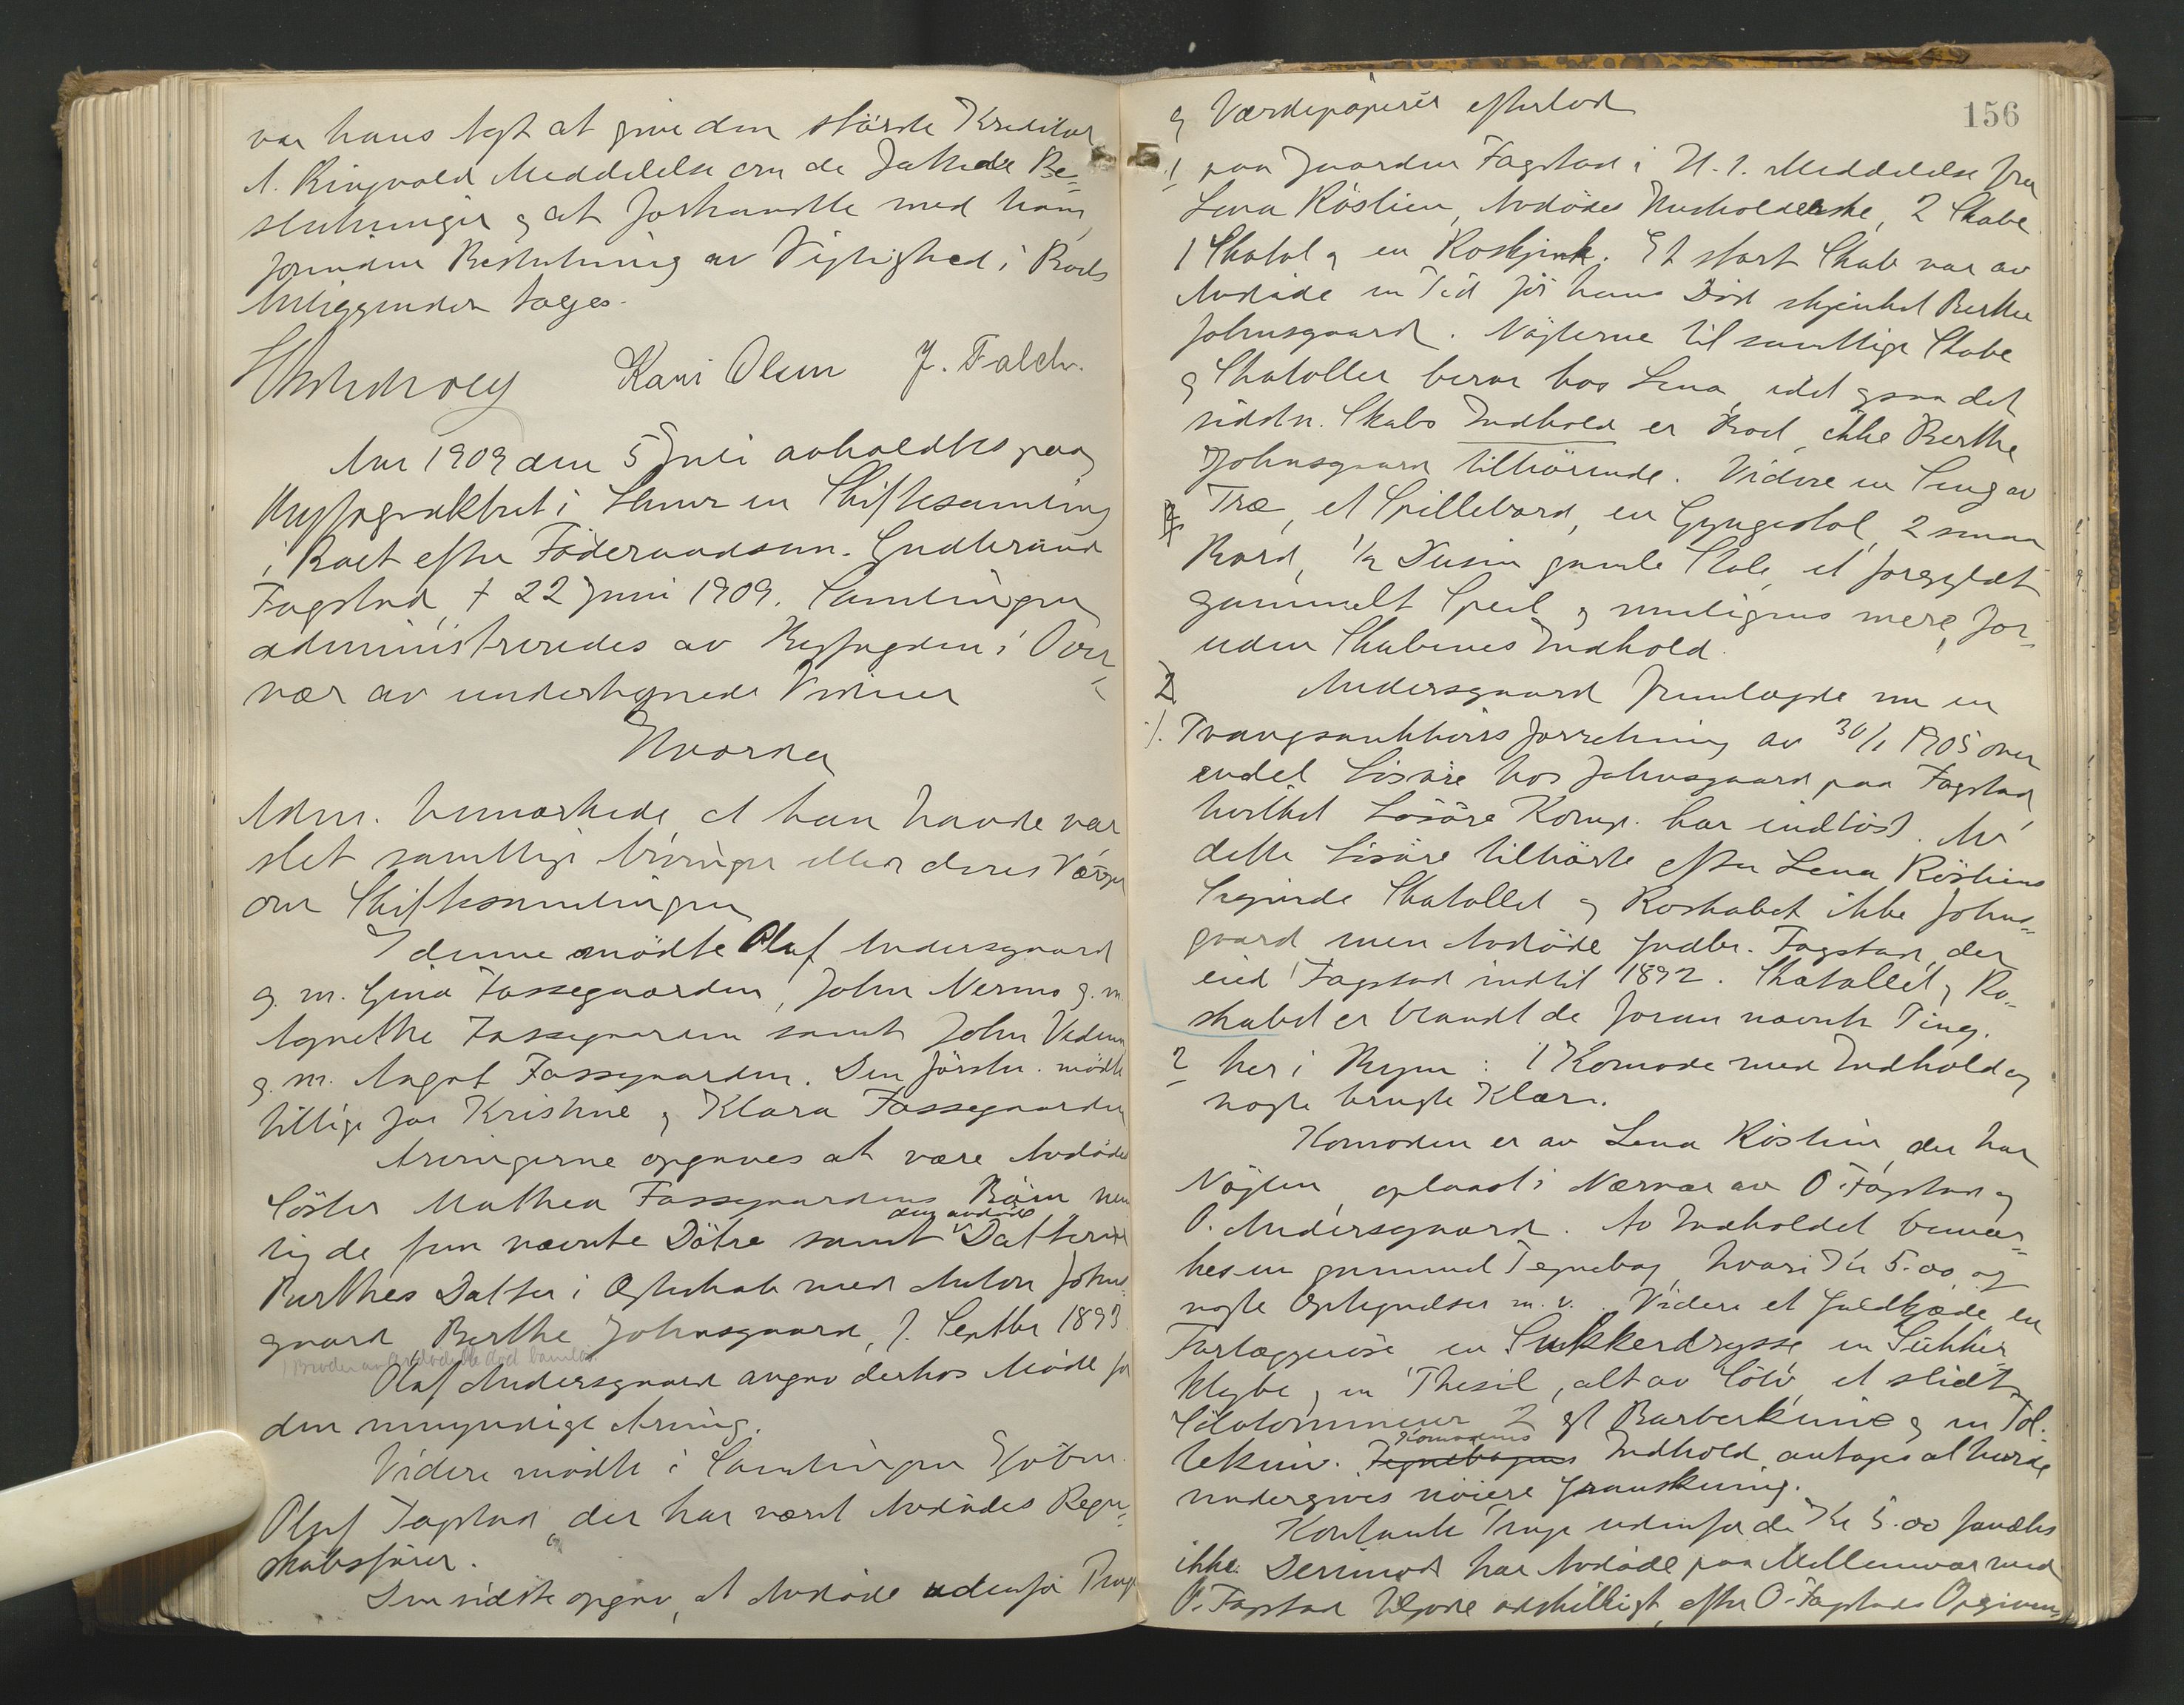 var hans Agt at give den største Kreditor
A. Ringvold Meddelelse om de fattede Be=
slutninger og at forhandle med ham,
forinden Beslutning av Vigtighed i Boets
Anliggender tages.
Kari Olsen J. Falch.
Aar 1909 den 5 Juli avholdtes paa
Byfogedkontoret i Hamar en Skiftesamling
i Boet efter Føderaadsm. Gudbrand
Fagstad, † 22 Juni 1909. Samlingen
administreredes av Byfogden i Over=
vær av undertegnede Vidner
Hvorda
Adm. bemærkede at han havde var
slet samtlige Arvinger eller deres Værger
om Skiftesamlingen
I denne mødte Olaf Andersgaard
g. m. Gina Fossegaarden, John Nermo g. m.
Agnethe Fossegaarden samt John Vedum
g. m. Angot Fossegaarden. Den førstn. mødte
tillige for Kristine og Klara Fossegaarden
Arvingerne opgaves at være Avdødes
Søster Mathea Fossegaardens Børn nem
lig de fem nævnte Døtre samt den avdøde Datter
Berthes Datter i Ægteskab med Anton Johns=
gaard, Berthe Johnsgaard, f. Septbr 1893.
1 Broder av avdøde er død barnløs.
Olaf Andersgaard angav derhos Møde for
den umyndige Arving.
Videre mødte i Samlingen Kjøbm.
Olaf Fagstad, der har været Avdødes Regn=
skabsfører.
Den sidste opgav, at Avdøde udenfor Penge
156
og Værdipapirer efterlod
1 paa Gaarden Fagstad i H. t. Meddelelse fra
Lena Røstien, Avdødes Husholderske, 2 Skabe
1 Skatol og en Roskjenk. Et stort Skab var av
Avdøde en Tid før hans Død skjenket Berthe
Johnsgaard. Nøglerne til samtlige Skabe
og Skatoller beror hos Lena, idet ogsaa det
sidstn. Skabs Indhold er Boet, ikke Berthe
Johnsgaard tilhørende. Videre en Seng av
Træ, et Spillebord, en Gyngestol, 2 smaa
Bord, ½ Dusin gamle Stole, et forgyldt
gammelt Speil og muligens mere, for=
uden Skabenes Indhold.
2 Andersgaard fremlagde nu en
Tvangsauktionsforretning av 30/1 1905 over
endel Løsøre hos Johnsgaard paa Fagstad,
hvilket Løsøre Komp. har indløst. Av
dette Løsøre tilhørte efter Lena Røstiens
Sigende Skatollet og Roskabet ikke Johns=
gaard men Avdøde Gudbr. Fagstad, der
eied Fagstad indtil 1892. Skatollet og Ro=
skabet er blandt de foran nævnte Ting.
2 her i Byen: 1 Komode med Indhold og
nogle brugte Klær.
Komoden er av Lena Røstien, der har
Nøglen oplaast i Nærvær av O. Fagstad og
O. Andersgaard. Av Indholdet bemær=
kes en gammel Tegnebog, hvori Kr 5.00 og
nogle Optegnelser m. v. Videre et Guldkjæde, en
Forlæggerøse en Sukkerdrysse en Sukker
klybe og en Thesil, alt av Sølv, et slidt
2 gl Barberknive og en Tol=
lekniv. Tegnebogens Komodens Indhold antages at burde
undergives nøiere Granskning.
Kontante Penge udenfor de Kr 5.00 fandtes
ikke. Derimod har Avdøde paa Mellemvær med
O. Fagstad tilgode adskilligt, efter O. Fagstads Opgivende